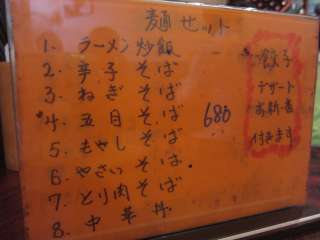 麺セット
1. ラーメン炒飯
2. 辛子そば
3. ねぎそば
4. 五目そば
5. もやしそば
6. やさいそば
7. とり肉そば
8. 中華丼
680
餃子
デザート
お新香
付きます